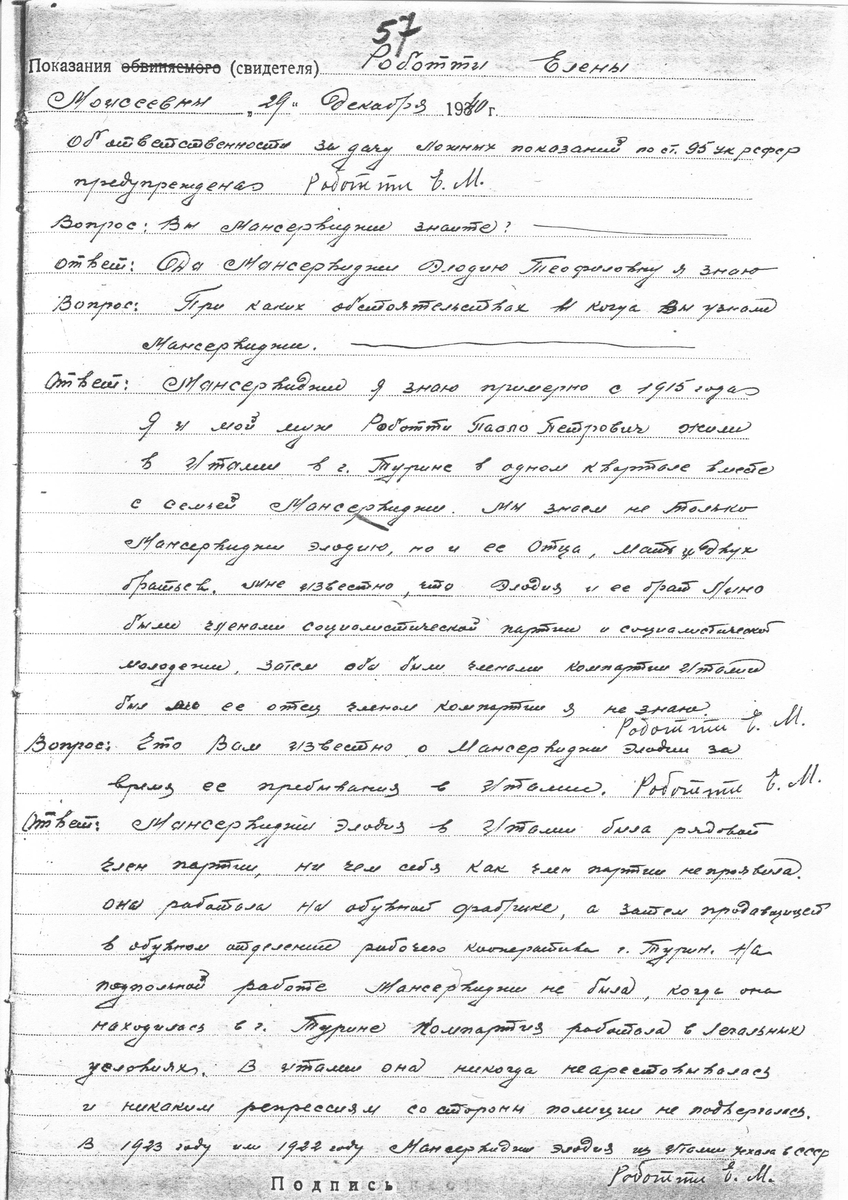 57
Показания обвиняемого (свидетеля) Роботти Елены
Моисеевны „29“ Декабря 1940 г.
Об ответственности за дачу ложных показаний по ст. 95 ук рсфср
предупреждена Роботти Е. М.
Вопрос: Вы Мансервиджи знаете?
Ответ: Да Мансервиджи Элодию Теофиловну я знаю
Вопрос: При каких обстоятельствах и когда Вы узнали
Мансервиджи.
Ответ: Мансервиджи я знаю примерно с 1915 года
Я и мой муж Роботти Паоло Петрович жили
в Италии в г. Турине в одном квартале вместе
с семьей Мансервиджи. Мы знаем не только
Мансервиджи Элодию, но и ее Отца, Мать и двух
братьев. мне известно, что Элодия и ее брат Лино
были членами социалистической партии и социалистической
молодежи, затем оба были членами компартии Италии
был ли ее отец членом компартии я не знаю.
Роботти Е. М.
Вопрос: Что Вам известно о Мансервиджи Элодии за
время ее пребывания в Италии. Роботти Е. М.
Ответ: Мансервиджи Элодия в Италии была рядовой
член партии, ни чем себя как член партии непроявила.
она работала на обувной фабрике, а затем продавщицей
в обувном отделении рабочего кооператива г. Турин. На
подпольной работе Мансервиджи не была, когда она
находилась в г. Турине Компартия работала в Легальных
условиях. В Италии она никогда неарестовывалась
и никаким репрессиям со стороны полиции не подвергалась.
В 1923 году или 1922 году Мансервиджи Элодия из Италии уехала в ссср
Роботти Е. М.
Подпись